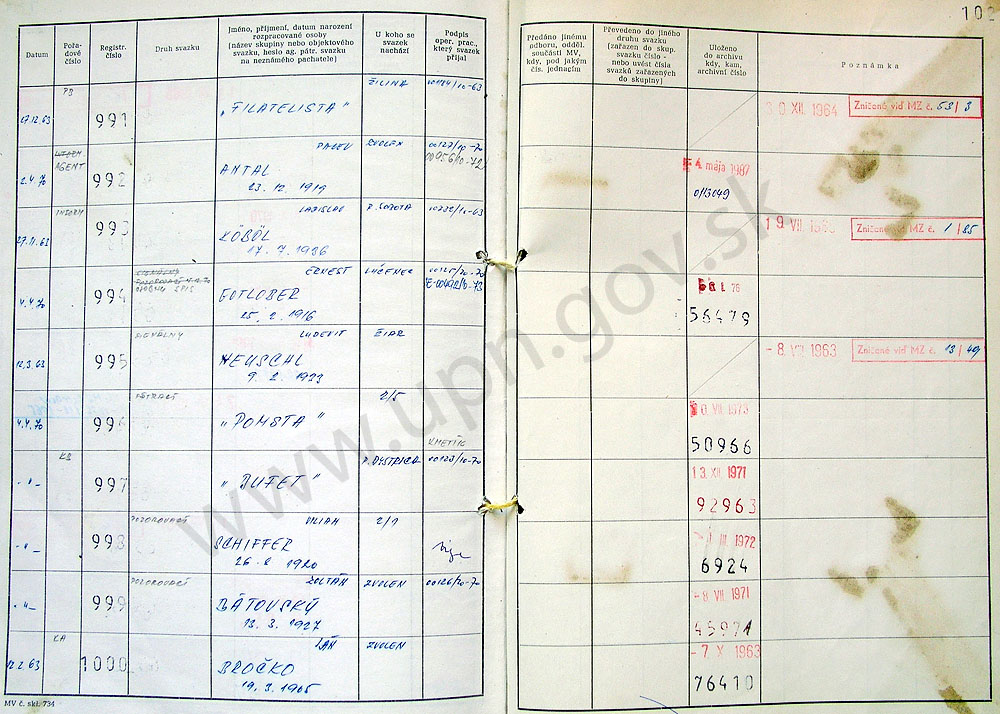 102
Datum
Pořa-
dové
číslo
Registr.
číslo
Druh svazku
Jméno, příjmení, datum narození
rozpracované osoby
(název skupiny nebo objektového
svazku, heslo ag. pátr. svazku
na neznámého pachatele)
U koho se
svazek
nachází
Podpis
oper. prac.,
který svazek
přijal
Předáno jinému
odboru, odděl.
součásti MV,
kdy, pod jakým
čís. jednacím
Převedeno do jiného
druhu svazku
(zařazen do skup.
svazku číslo -
nebo uvést čísla
svazků zařazených
do skupiny)
Uloženo
do archivu
kdy, kam,
archivní číslo
Poznámka
27.12.63
PS
991
„FILATELISTA"
ŽILINA
XII. 1964
Zničené viď MZ č. 53/3
2.4.70
AGENT
992
ANTAL
23. 12. 1919
ZVOLEN
00123/10-70
4 mája 1987
27.11.63
INFORM
993
LADISLAV
KÖBÖL
17. 7. 1936
R. SOBOTA
00232/10-63
19. VII.
Zničené viď MZ č. 1/85
4.4.70
994
ERNEST
GOTLOBER
25. 2. 1916
LUČENEC
00125/20-70
76
56479
12.3.63
SIGNÁLNY
995
ĽUDEVIT
HEUSCHL
9. 2. 1923
ŽIAR
-8. VII 1963
Zničené viď MZ č. 13/49
4.4.70
PÁTRACÍ
996
„POMSTA"
2/5
VII. 1973
50966
- " -
KS
997
„BUFET"
B. BYSTRICA
KMETÍK
00123/10-70
13. XII. 1971
92963
- " -
POZOROVACÍ
998
VILIAM
SCHIFFER
1920
2/1
III. 1972
6924
- " -
POZOROVACÍ
999
ZOLTÁN
BÁTOVSKÝ
13. 3. 1927
ZVOLEN
00126/20-70
-8 VII 1971
45971
12.2.63
KA
1000
JÁN
BROČKO
19. 3. 1905
ZVOLEN
-7. X 1963
76410
MV č. skl. 734
www.upn.gov.sk